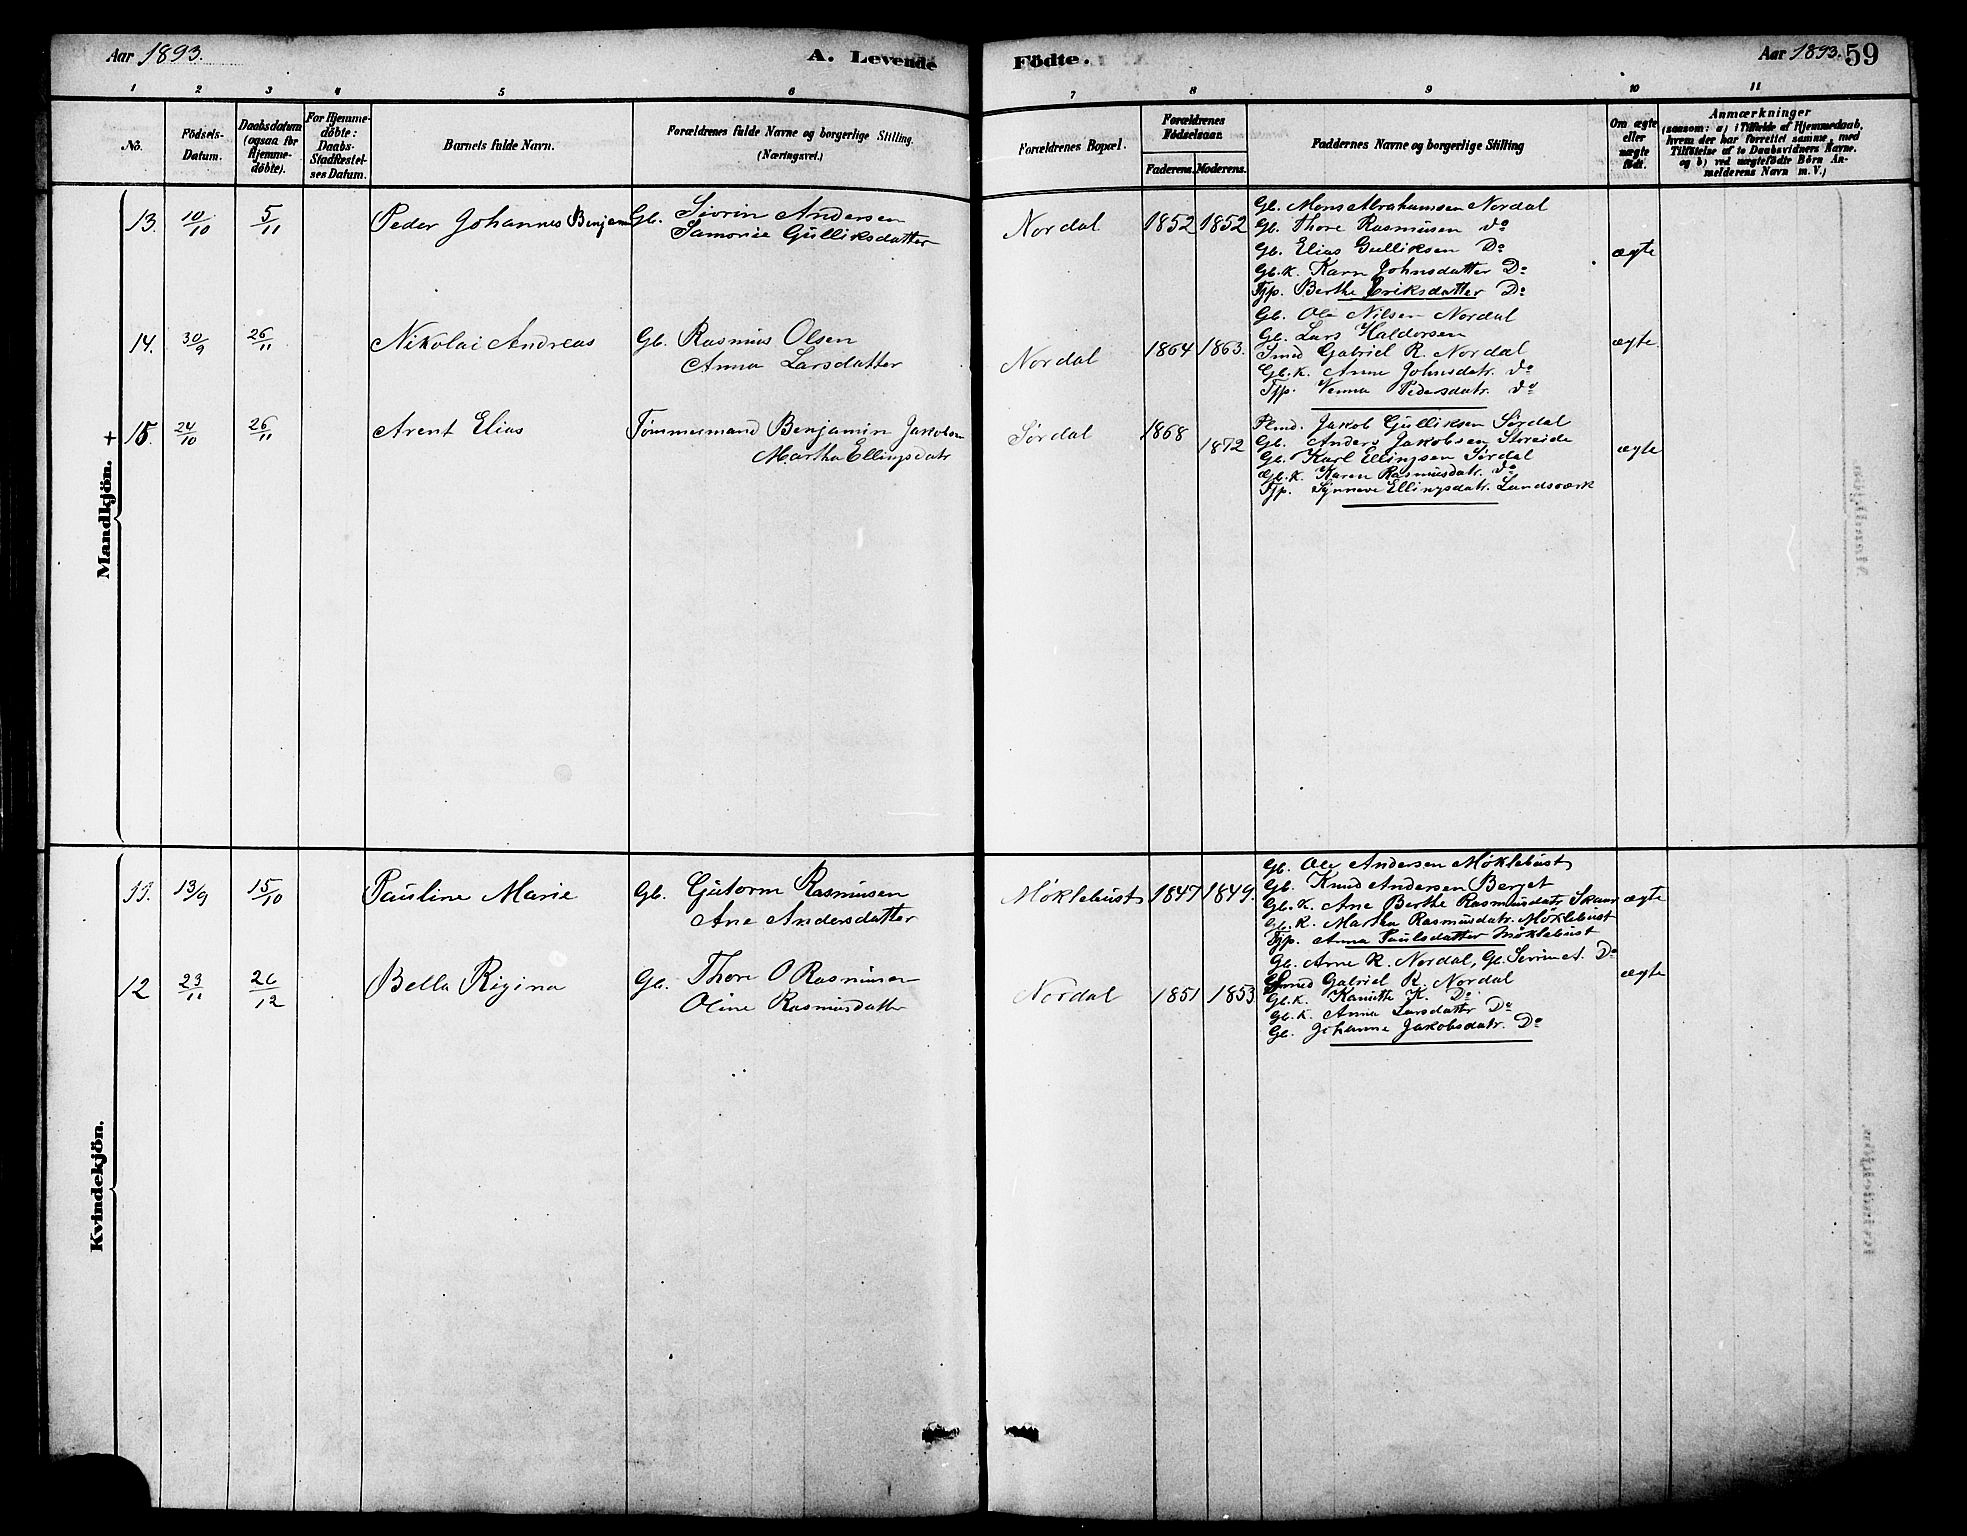 Aar 1893.
A. Levende
Födte.
Aar 1893. 59
1 2 3 4 5 6 7 8 9 10 11
No.
Födsels-Datum.
Daabsdatum (ogsaa for Hjemme-döbte).
For Hjemme-döbte: Daabs-Stadfæstel-ses Datum.
Barnets fulde Navn.
Forældrenes fulde Navne og borgerlige Stilling. (Næringsvei.)
Forældrenes Bopæl.
Forældrenes Födselsaar.
Faderens. Moderens.
Faddernes Navne og borgerlige Stilling
Om ægte eller uægte födt.
Anmærkninger
(saasom: a) i Tilfælde af Hjemmedaab,
hvem der har forrettet samme, med
Tilföielse af to Daabsvidners Navne,
og b) ved uægtefödte Börn An-
melderens Navn m. V.)
Mandkjön.
13. 10/10 5/11 Peder Johannes Benjam Gb. Sivrin Andersen
Samorine Gulliksdatter
Nordal 1852 1852
Gb. Mons Abrahamsen Nordal
Gb. Thore Rasmusen do
Gb. Elias Gulliksen Do
Gb.k. Karn Johnsdatter Do
Tjp. Berthe Eriksdatter Do
ægte
14. 30/9 26/11 Nikolai Andreas Gb. Rasmus Olsen
Anna Larsdatter
Nordal 1864 1863.
Gb. Ole Nilsen Nordal
Gb. Lars Haldorsen
Smed Gabriel R. Nordal
Gb.k. Anne Johnsdatr. do
Tjp. Venna Pedersdatr. do
ægte.
+ 15. 24/10 26/11 Arent Elias Tømmermand Benjamin Jakobsen
Martha Ellingsdatr
Sørdal 1868 1872
Plmd. Jakob Gulliksen Sørdal
Gb. Anders Jakobsen Storeide
Gb. Karl Ellingsen Sørdal
Gb.k. Karen Rasmusdatr. do
Tjp. Synneve Ellingsdatr. Landsværk
ægte
Kvindekjön.
11. 13/9 15/10 Pauline Marie Gb. Gutorm Rasmusen
Ane Andersdatter
Møklebust 1847 1849.
Gb. Ole Andersen Møklebust
Gb. Knud Andersen Berget
Gb.K. Ane Berthe Rasmusdatr Skaar
Gb.K. Martha Rasmusdatr. Møklebust
Tjp. Anna Paulsdatter Møklebust
ægte
12 23/11 26/12 Bella Rigina Gb. Thore O Rasmusen
Oline Rasmusdatter
Nordal 1851 1853
Gb. Arne R. Nordal, Gb. Sivrin A. Do
Smed Gabriel R. Nordal
Gb.k. Kanutte K. Do
Gb.K. Anna Larsdattr Do
Gb. Johanne Jakobsdatr. Do
ægte